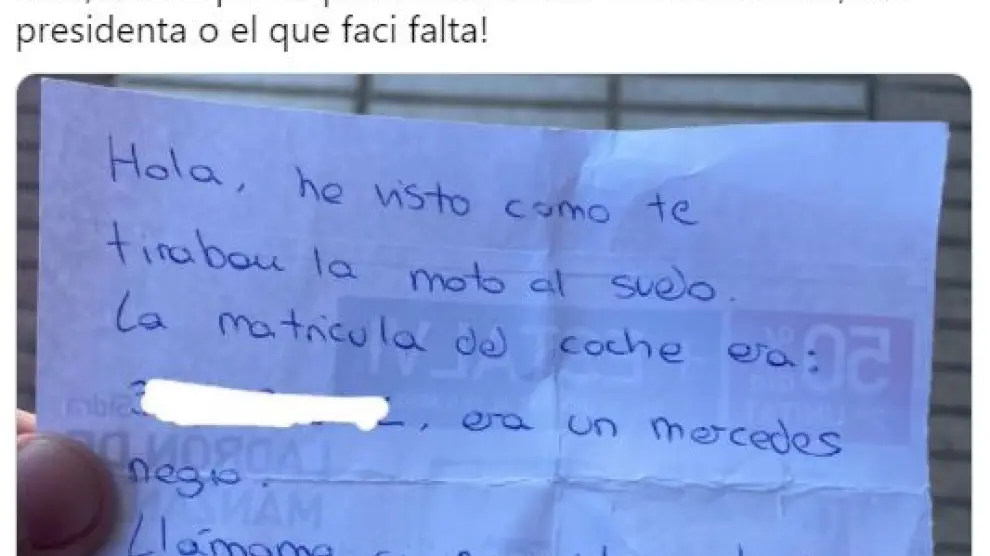 presidenta o el que faci falta!
Hola, he visto como te
tiraban la moto al suelo.
La matrícula del coche era:
, era un mercedes
negro.
Llámame